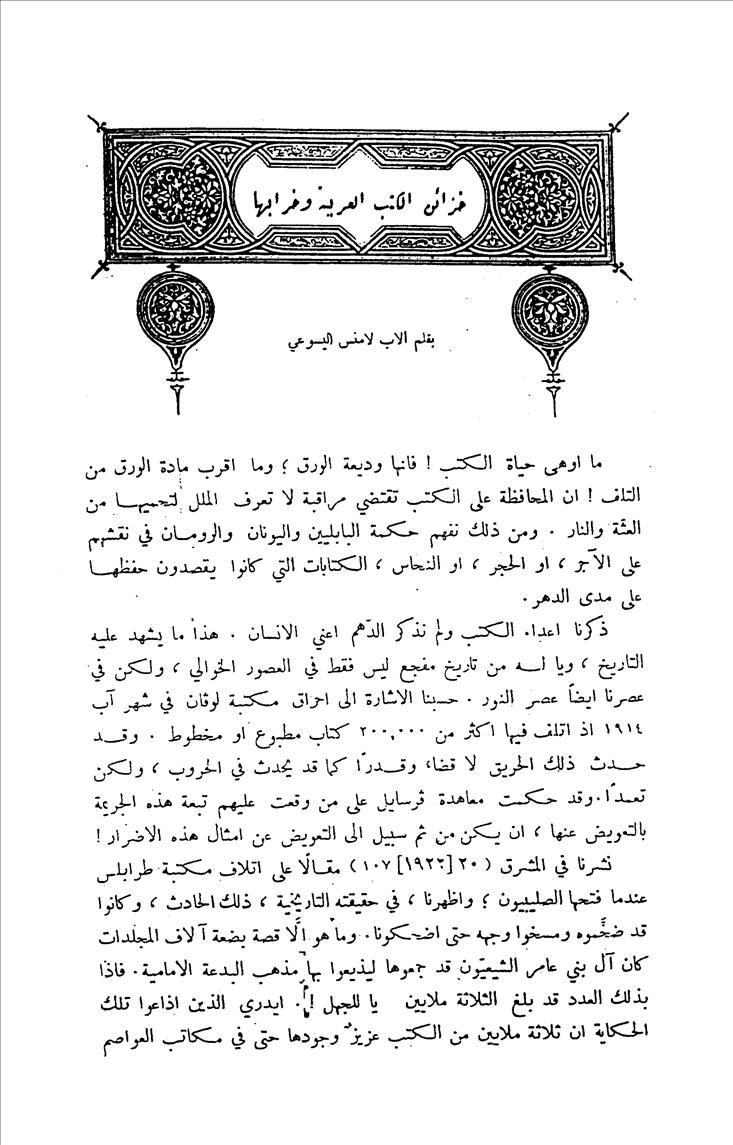 خزائن الكتب العربية وخرابها
بقلم الاب لامنس اليسوعي
ما اوهى حياة الكتب ! فانها وديعة الورق ؛ وما اقرب مادة الورق من
التلف ! ان المحافظة على الكتب تقتضي مراقبة لا تعرف الملل لتحميهـا من
العثة والنار . ومن ذلك نفهم حكمة البابليين واليونان والرومان في نقشهم
على الآجر ، او الحجر ، او النحاس ، الكتابات التي كانوا يقصدون حفظهـا
على مدى الدهر .
ذكرنا اعداء الكتب ولم نذكر الدّهم اعني الانسان . هذا ما يشهد عليه
التاريخ ، ويا له من تاريخ مفجع ليس فقط في العصور الخوالي ، ولكن في
عصرنا ايضاً عصر النور . حسبنا الاشارة الى احراق مكتبة لوڤان في شهر آب
١٩١٤ اذ اتلف فيها اكثر من ٢٠٠,٠٠٠ كتاب مطبوع او مخطوط . وقـد
حـدث ذلك الحريق لا قضاء وقـدرًا كما قد يحدث في الحروب ، ولـكن
تعمدًا . وقد حكمت معاهدة ڤرسايل على من وقعت عليهم تبعة هذه الجريمة
بالتعويض عنها ، ان يكن من ثم سبيل الى التعويض عن امثال هذه الاضرار !
نشرنا في المشرق ( ٢٠ [١٩٢٢] ١٠٧ ) مقالًا على اتلاف مكتبة طرابلس
عندما فتحها الصليبيون ؛ واظهرنا ، في حقيقته التاريخية ، ذلك الحادث ، وكانوا
قد ضخّموه ومسخوا وجهه حتى اضحكونا . وما هو الّا قصة بضعة آلاف المجلدات
كان آل بني عامر الشيعيّون قد جمعوها ليذيعوا بها مذهب البدعة الامامية . فاذا
بذلك العدد قد بلغ الثلاثة ملايين يا للجهل ! . ايدري الذين اذاعوا تلك
الحكاية ان ثلاثة ملايين من الكتب عزيزٌ وجودها حتى في مكاتب العواصم